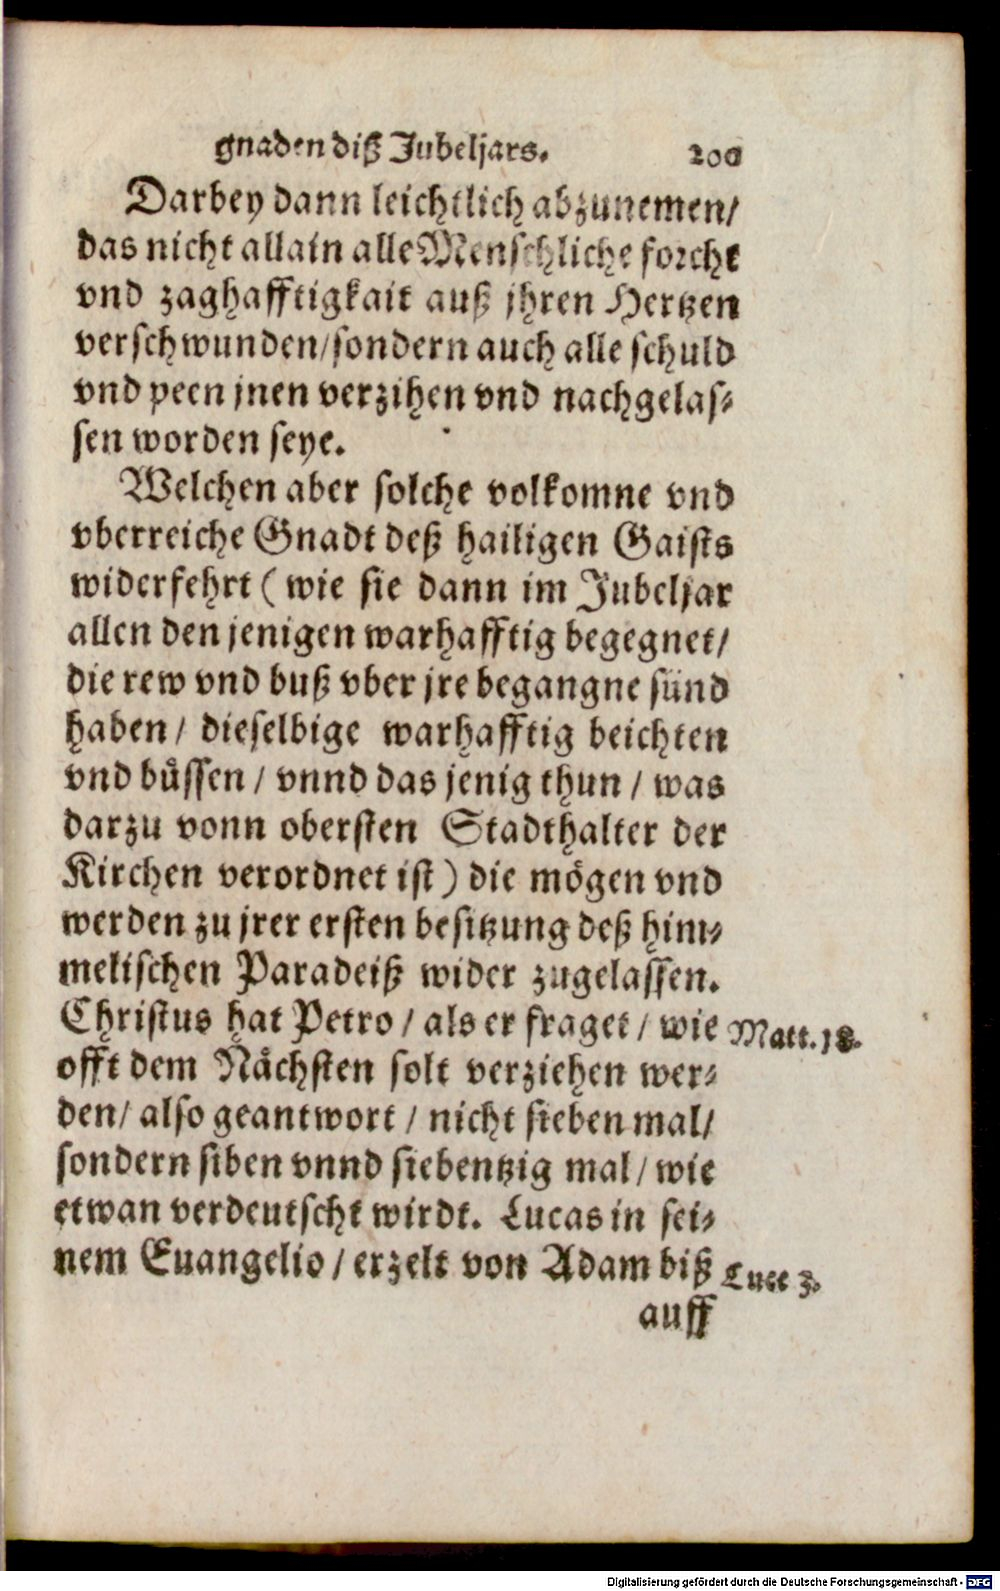 gnaden diß Jubeljars. 200
Darbey dann leichtlich abzunemen/
das nicht allain alle Menschliche forcht
vnd zaghafftigkait auß jhren Hertzen
verschwunden/sondern auch alle schuld
vnd peen jnen verzihen vnd nachgelas-
sen worden seye.
Welchen aber solche volkomne vnd
vberreiche Gnadt deß hailigen Gaists
widerfehrt (wie sie dann im Jubeljar
allen den jenigen warhafftig begegnet/
die rew vnd buß vber jre begangne sünd
haben/ dieselbige warhafftig beichten
vnd büssen/ vnnd das jenig thun/ was
darzu vonn obersten Stadthalter der
Kirchen verordnet ist) die mögen vnd
werden zu jrer ersten besitzung deß him-
melischen Paradeiß wider zugelassen.
Christus hat Petro/ als er fraget/ wie Matt. 18.
offt dem Nächsten solt verziehen wer-
den/ also geantwort/ nicht sieben mal/
sondern siben vnnd siebentzig mal/ wie
etwan verdeutscht wirdt. Lucas in sei-
nem Euangelio/ erzelt von Adam biß Luce 3.
auff
Digitalisierung gefördert durch die Deutsche Forschungsgemeinschaft - DFG